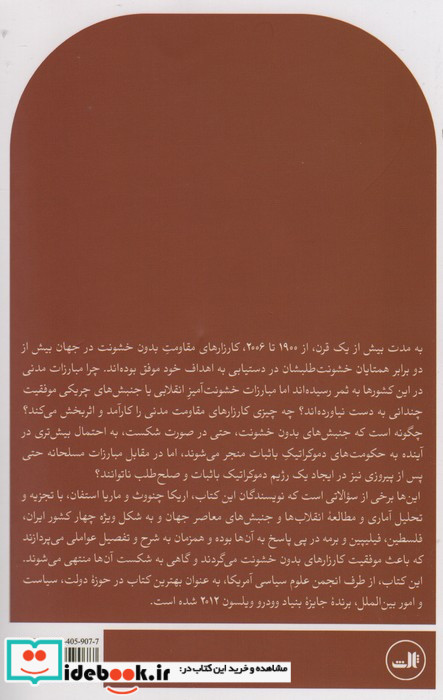 به مدت بیش از یک قرن، از ۱۹۰۰ تا ۲۰۰۶، کارزارهای مقاومتِ بدون خشونت در جهان بیش از
دو برابر همتایان خشونت‌طلبشان در دستیابی به اهداف خود موفق بوده‌اند. چرا مبارزات مدنی
در این کشورها به ثمر رسیده‌اند اما مبارزات خشونت‌آمیزِ انقلابی یا جنبش‌های چریکی موفقیت
چندانی به دست نیاورده‌اند؟ چه چیزی کارزارهای مقاومت مدنی را کارآمد و اثربخش می‌کند؟
چگونه است که جنبش‌های بدون خشونت، حتی در صورت شکست، به احتمال بیش‌تری در
آینده به حکومت‌های دموکراتیکِ باثبات منجر می‌شوند، اما در مقابل مبارزات مسلحانه حتی
پس از پیروزی نیز در ایجاد یک رژیم دموکراتیک باثبات و صلح‌طلب ناتوانند؟
این‌ها برخی از سؤالاتی است که نویسندگان این کتاب، اریکا چنووث و ماریا استفان، با تجزیه و
تحلیل آماری و مطالعهٔ انقلاب‌ها و جنبش‌های معاصر جهان و به شکل ویژه چهار کشور ایران،
فلسطین، فیلیپین و برمه در پی پاسخ به آن‌ها بوده و همزمان به شرح و تفصیل عواملی می‌پردازند
که باعث موفقیت کارزارهای بدون خشونت می‌گردند و گاهی به شکست آن‌ها منتهی می‌شوند.
این کتاب، از طرف انجمن علوم سیاسی آمریکا، به عنوان بهترین کتاب در حوزهٔ دولت، سیاست
و امور بین‌الملل، برندهٔ جایزهٔ بنیاد وودرو ویلسون ۲۰۱۲ شده است.
405-907-7
مشاهده و خرید این کتاب در:
idebook.ir
ثالث